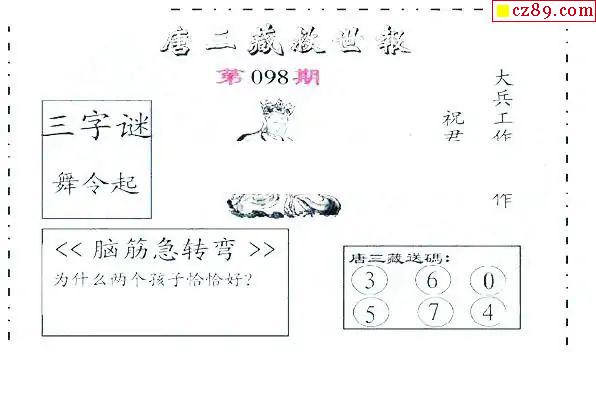 cz89.com
唐二藏救世报
第098期
三字谜
舞令起
大兵工作
祝君
作
<< 脑筋急转弯 >>
为什么两个孩子恰恰好?
唐三藏送码:
3 6 0
5 7 4